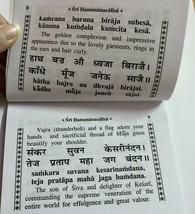 8 * Śrī Hanumānacālīsā *
kaṁcana barana birāja subesā,
kānana kuṁḍala kuṁcita kesā.
The golden complexion and impressive
appearance due to the lovely garments, rings in
the ears and hair curly.
हाथ बज्र औ ध्वजा बिराजै।
काँधे मूँज जनेऊ साजै॥
hātha bajra au dhvajā birājai,
kādhe mūja janeū sājai.
* Śrī Hanumānacālīsā *
Vajra (thunderbolt) and a flag adorn your
hands and sacrificial thread of Mūñja grass
beautify your shoulder.
संकर सुवन केसरीनंदन।
तेज प्रताप महा जग बंदन॥
saṁkara suvana kesarīnaṁdana,
teja pratāpa mahā jaga baṁdana.
The son of Śiva and delighter of Kesarī,
commanding the supreme veneration of the
entire world for effulgence and great valour.